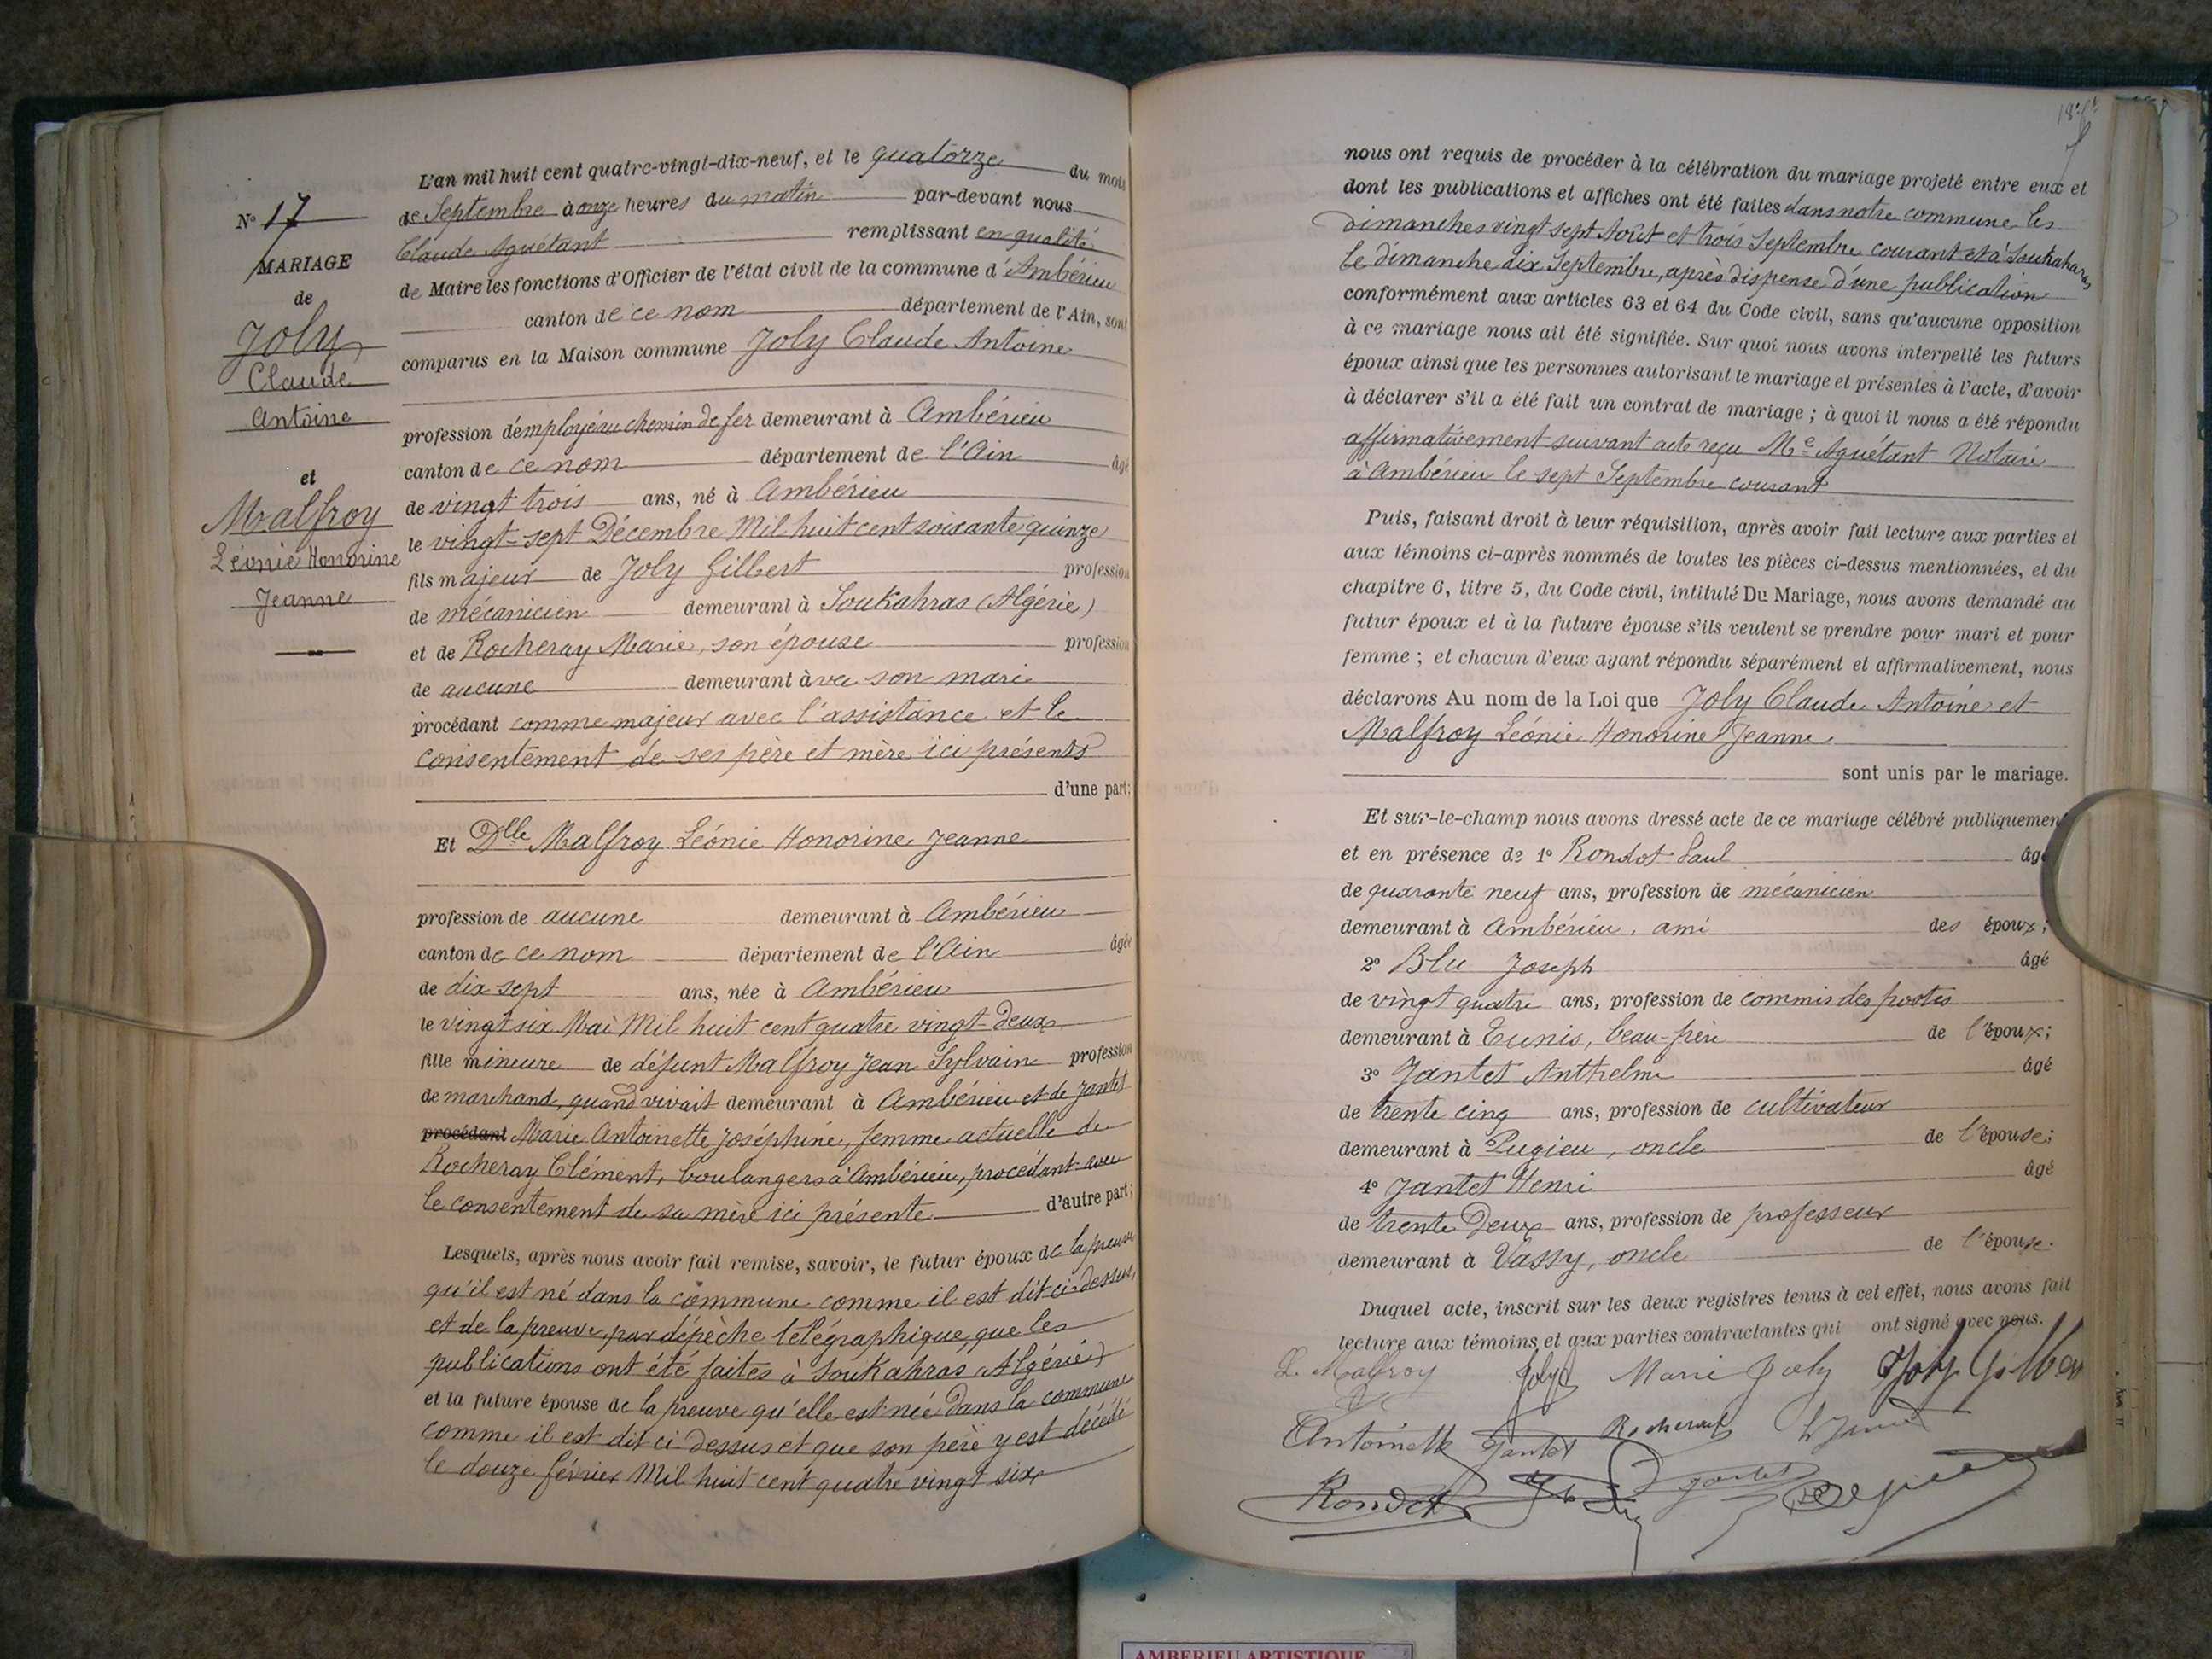 N° 17
MARIAGE
de
Joly
Claude
Antoine
et
Malfroy
Léonie Honorine
Jeanne
L'an mil huit cent quatre-vingt-dix-neuf, et le quatorze du mois
de Septembre à onze heures du matin par-devant nous
Claude Aguétant remplissant en qualité
de Maire les fonctions d'Officier de l'état civil de la commune d'Ambérieu
canton de ce nom département de l'Ain, sont
comparus en la Maison commune Joly Claude Antoine
profession d'employé au chemin de fer demeurant à Ambérieu
canton de ce nom département de l'Ain âgé
de vingt trois ans, né à Ambérieu
le vingt-sept Décembre Mil huit cent soixante quinze
fils majeur de Joly Gilbert profession
de mécanicien demeurant à Soukahras (Algérie)
et de Rocheray Marie, son épouse profession
de aucune demeurant avec son mari
procédant comme majeur avec l'assistance et le
consentement de ses père et mère ici présents
d'une part;
Et Dlle Malfroy Léonie Honorine Jeanne
profession de aucune demeurant à Ambérieu
canton de ce nom département de l'Ain âgée
de dix sept ans, née à Ambérieu
le vingt six Mai Mil huit cent quatre vingt-deux
fille mineure de défunt Malfroy Jean Sylvain profession
de marchand, quand vivait demeurant à Ambérieu et de Jantet
procédant Marie Antoinette Joséphine, femme actuelle de
Rocheray Clément, boulangers à Ambérieu, procédant avec
le consentement de sa mère ici présente d'autre part;
Lesquels, après nous avoir fait remise, savoir, le futur époux de la preuve
qu'il est né dans la commune comme il est dit ci-dessus,
et de la preuve, par dépèche télégraphique, que les
publications ont été faites à Soukahras (Algérie)
et la future épouse de la preuve qu'elle est née dans la commune
comme il est dit ci-dessus et que son père y est décédé
le douze février Mil huit cent quatre vingt six
nous ont requis de procéder à la célébration du mariage projeté entre eux et
dont les publications et affiches ont été faites dans notre commune les
dimanches vingt sept Août et trois Septembre courant et à Soukahras
le dimanche dix Septembre, après dispense d'une publication
conformément aux articles 63 et 64 du Code civil, sans qu'aucune opposition
à ce mariage nous ait été signifiée. Sur quoi nous avons interpellé les futurs
époux ainsi que les personnes autorisant le mariage et présentes à l'acte, d'avoir
à déclarer s'il a été fait un contrat de mariage ; à quoi il nous a été répondu
affirmativement suivant acte reçu Me Aguétant Notaire
à Ambérieu le sept Septembre courant
Puis, faisant droit à leur réquisition, après avoir fait lecture aux parties et
aux témoins ci-après nommés de toutes les pièces ci-dessus mentionnées, et du
chapitre 6, titre 5, du Code civil, intitulé Du Mariage, nous avons demandé au
futur époux et à la future épouse s'ils veulent se prendre pour mari et pour
femme ; et chacun d'eux ayant répondu séparément et affirmativement, nous
déclarons Au nom de la Loi que Joly Claude Antoine et
Malfroy Léonie Honorine Jeanne
sont unis par le mariage.
Et sur-le-champ nous avons dressé acte de ce mariage célébré publiquement
et en présence de 1° Rondot Paul âgé
de quarante neuf ans, profession de mécanicien
demeurant à Ambérieu, ami des époux;
2° Blu Joseph âgé
de vingt quatre ans, profession de commis des postes
demeurant à Tunis, beau-frère de l'époux;
3° Jantet Anthelme âgé
de trente cinq ans, profession de cultivateur
demeurant à Pugieu, oncle de l'épouse;
4° Jantet Henri âgé
de trente deux ans, profession de professeur
demeurant à Vassy, oncle de l'épouse.
Duquel acte, inscrit sur les deux registres tenus à cet effet, nous avons fait
lecture aux témoins et aux parties contractantes qui ont signé avec nous.
L. Malfroy Joly Marie Joly Joly Gilbert
Antoinette Jantet Rocheray
Rondot Jantet
AMBERIEU ARTISTIQUE